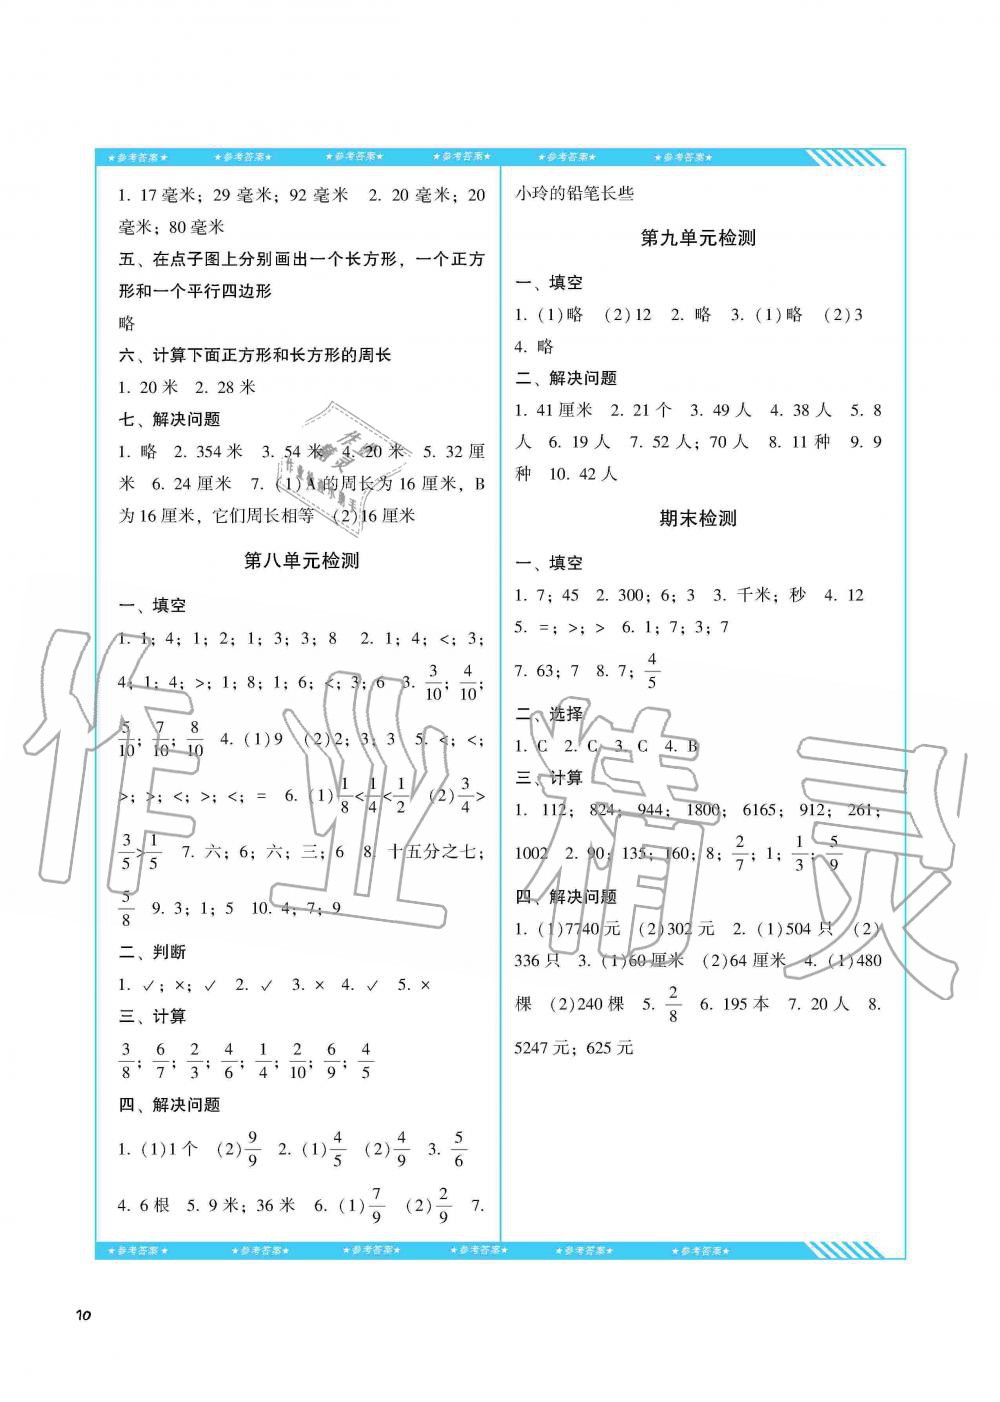 ★参考答案★ ★参考答案★ ★参考答案★ ★参考答案★ ★参考答案★ ★参考答案★
1. 17毫米；29毫米；92毫米 2. 20毫米；20
毫米；80毫米
五、在点子图上分别画出一个长方形，一个正方
形和一个平行四边形
略
六、计算下面正方形和长方形的周长
1. 20米 2. 28米
七、解决问题
1. 略 2. 354米 3. 54米 4. 20米 5. 32厘
米 6. 24厘米 7. (1)A的周长为16厘米，B
为16厘米，它们周长相等 (2)16厘米
第八单元检测
一、填空
1. 1；4；1；2；1；3；3；8 2. 1；4；<；3；
4；1；4；>；1；8；1；6；<；3；6 3. 3/10；4/10；
5/10；7/10；8/10 4. (1)9 (2)2；3；3 5. <；<；
>；>；<；>；<；= 6. (1)1/8<1/4<1/2 (2)3/4>
3/5>1/5 7. 六；6；六；三；6 8. 十五分之七；
5/8 9. 3；1；5 10. 4；7；9
二、判断
1. ✓；×；✓ 2. ✓ 3. × 4. ✓ 5. ×
三、计算
3/8；6/7；2/3；4/6；1/4；2/10；6/9；4/5
四、解决问题
1. (1)1个 (2)9/9 2. (1)4/5 (2)4/9 3. 5/6
4. 6根 5. 9米；36米 6. (1)7/9 (2)2/9 7.
小玲的铅笔长些
第九单元检测
一、填空
1. (1)略 (2)12 2. 略 3. (1)略 (2)3
4. 略
二、解决问题
1. 41厘米 2. 21个 3. 49人 4. 38人 5. 8
人 6. 19人 7. 52人；70人 8. 11种 9. 9
种 10. 42人
期末检测
一、填空
1. 7；45 2. 300；6；3 3. 千米；秒 4. 12
5. =；>；> 6. 1；7；3；7
7. 63；7 8. 7；4/5
二、选择
1. C 2. C 3. C 4. B
三、计算
1. 112；824；944；1800；6165；912；261；
1002 2. 90；135；160；8；2/7；1；1/3；5/9
四、解决问题
1. (1)7740元 (2)302元 2. (1)504只 (2)
336只 3. (1)60厘米 (2)64厘米 4. (1)480
棵 (2)240棵 5. 2/8 6. 195本 7. 20人 8.
5247元；625元
★参考答案★ ★参考答案★ ★参考答案★ ★参考答案★ ★参考答案★ ★参考答案★
10
作业精灵